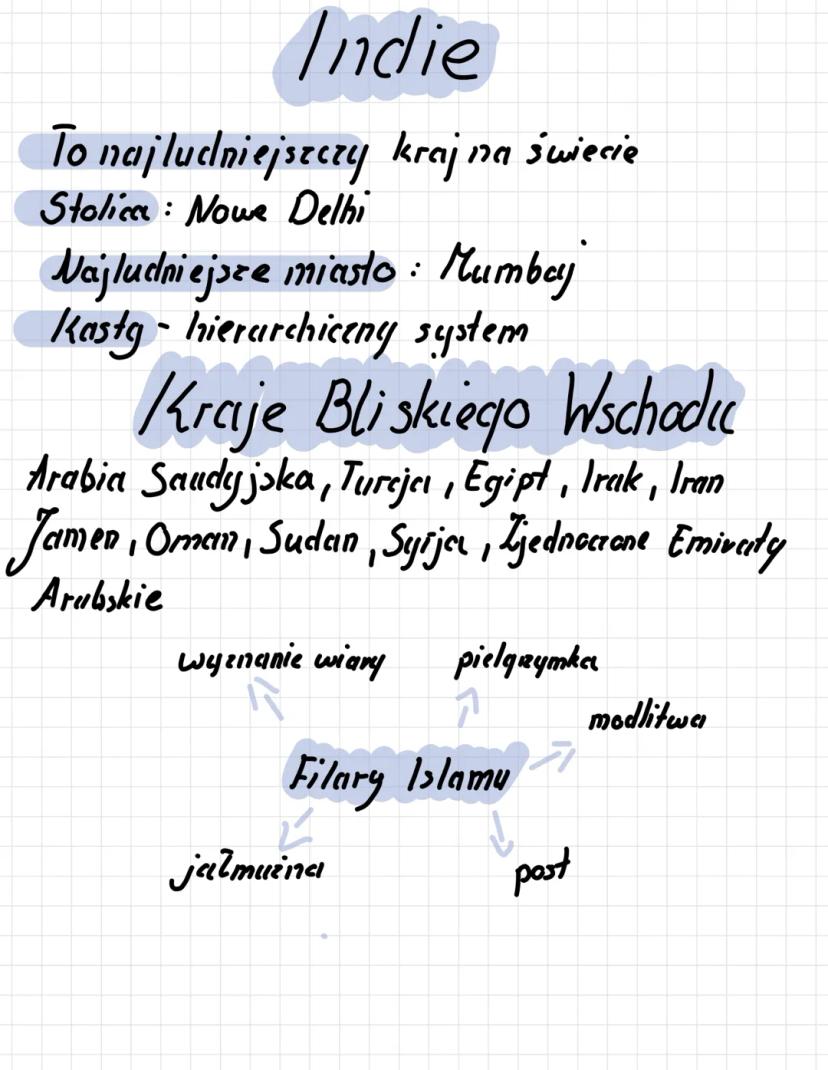 Indie
To najludniejszczy kraj na świecie
Stolica: Nowe Delhi
Najludniejsze miasto: Mumbaj
Kasty - hierarchiczny system
Kraje Bliskiego Wschodu
Arabia Saudyjska, Turcja, Egipt, Irak, Iran
Jemen, Oman, Sudan, Syrja, Zjednoczone Emiraty
Arabskie
wyznanie wiary pielgrzymka
modlitwa
Filary Islamu
jałmużna post